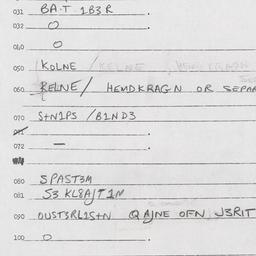 031 BA·T 1B3R
032 O
040 O
050 KOLNE / KELNE / HEMDKRAGN
060 RELNE / HEMDKRAGN OR SEPAR
070 S+N1PS / B1ND3
071
072 —
080 SPAST3M
081 S3 KL8AJT1N
090 OUST3RL1S+N QAJNE OFN J3RIT
100 O